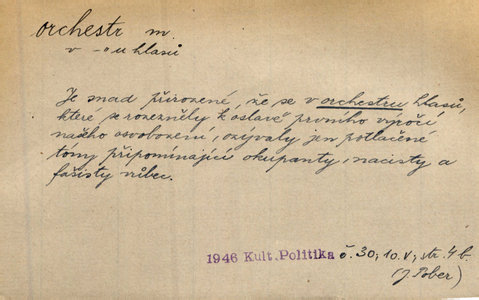 orchestr m.
v -u hlasů
Je snad přirozené, že se v orchestru hlasů,
které se rozezněly k oslavě prvního výročí
našeho osvobození, ozývaly jen potlačené
tóny připomínající okupanty, nacisty a
fašisty vůbec.
1946 Kult. Politika č. 30, 10.V, str. 4b.
(J. Pober)